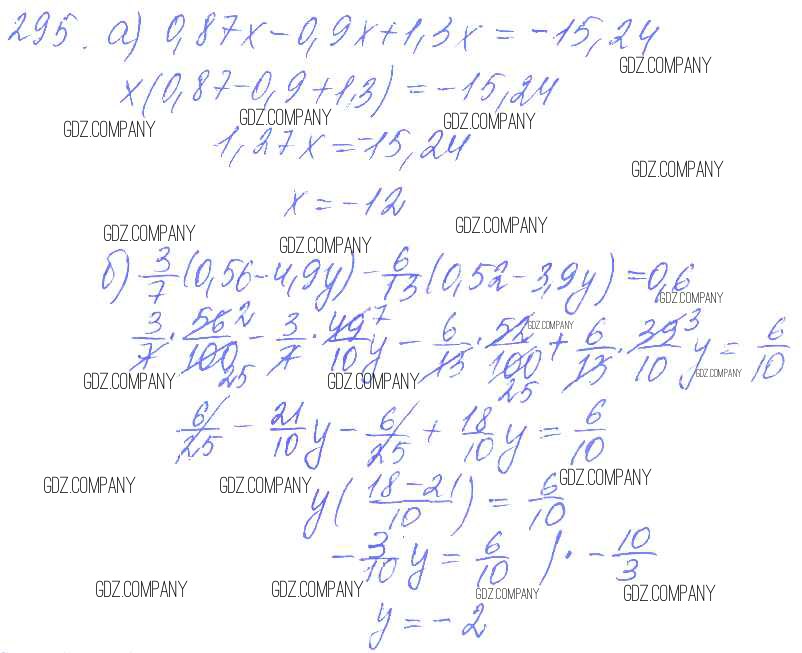 295. а) 0,87x - 0,9x + 1,3x = -15,24
GDZ.COMPANY
x(0,87 - 0,9 + 1,3) = -15,24
GDZ.COMPANY GDZ.COMPANY GDZ.COMPANY
1,27x = -15,24
GDZ.COMPANY
x = -12
GDZ.COMPANY GDZ.COMPANY GDZ.COMPANY
б) 3/7 (0,56 - 4,9y) - 6/13 (0,52 - 3,9y) = 0,6
GDZ.COMPANY
3/7 · 56 2/100 25 - 3/7 · 49 7/10 y - 6/13 · 52/100 25 + 6/13 · 39 3/10 y = 6/10
GDZ.COMPANY GDZ.COMPANY GDZ.COMPANY GDZ.COMPANY
6/25 - 21/10 y - 6/25 + 18/10 y = 6/10
GDZ.COMPANY GDZ.COMPANY GDZ.COMPANY
y( 18-21/10 ) = 6/10
-3/10 y = 6/10 | · -10/3
GDZ.COMPANY GDZ.COMPANY GDZ.COMPANY GDZ.COMPANY
y = -2